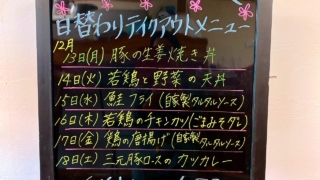 日替わりテイクアウトメニュー
12月
13日(月) 豚の生姜焼き丼
14日(火) 若鶏と野菜の天丼
15日(水) 鮭フライ(自家製タルタルソース)
16日(木) 若鶏のチキンカツ(ごまみそダレ)
17日(金) 鶏の唐揚げ(自家製タルタルソース)
18日(土) 三元豚ロースのカツカレー